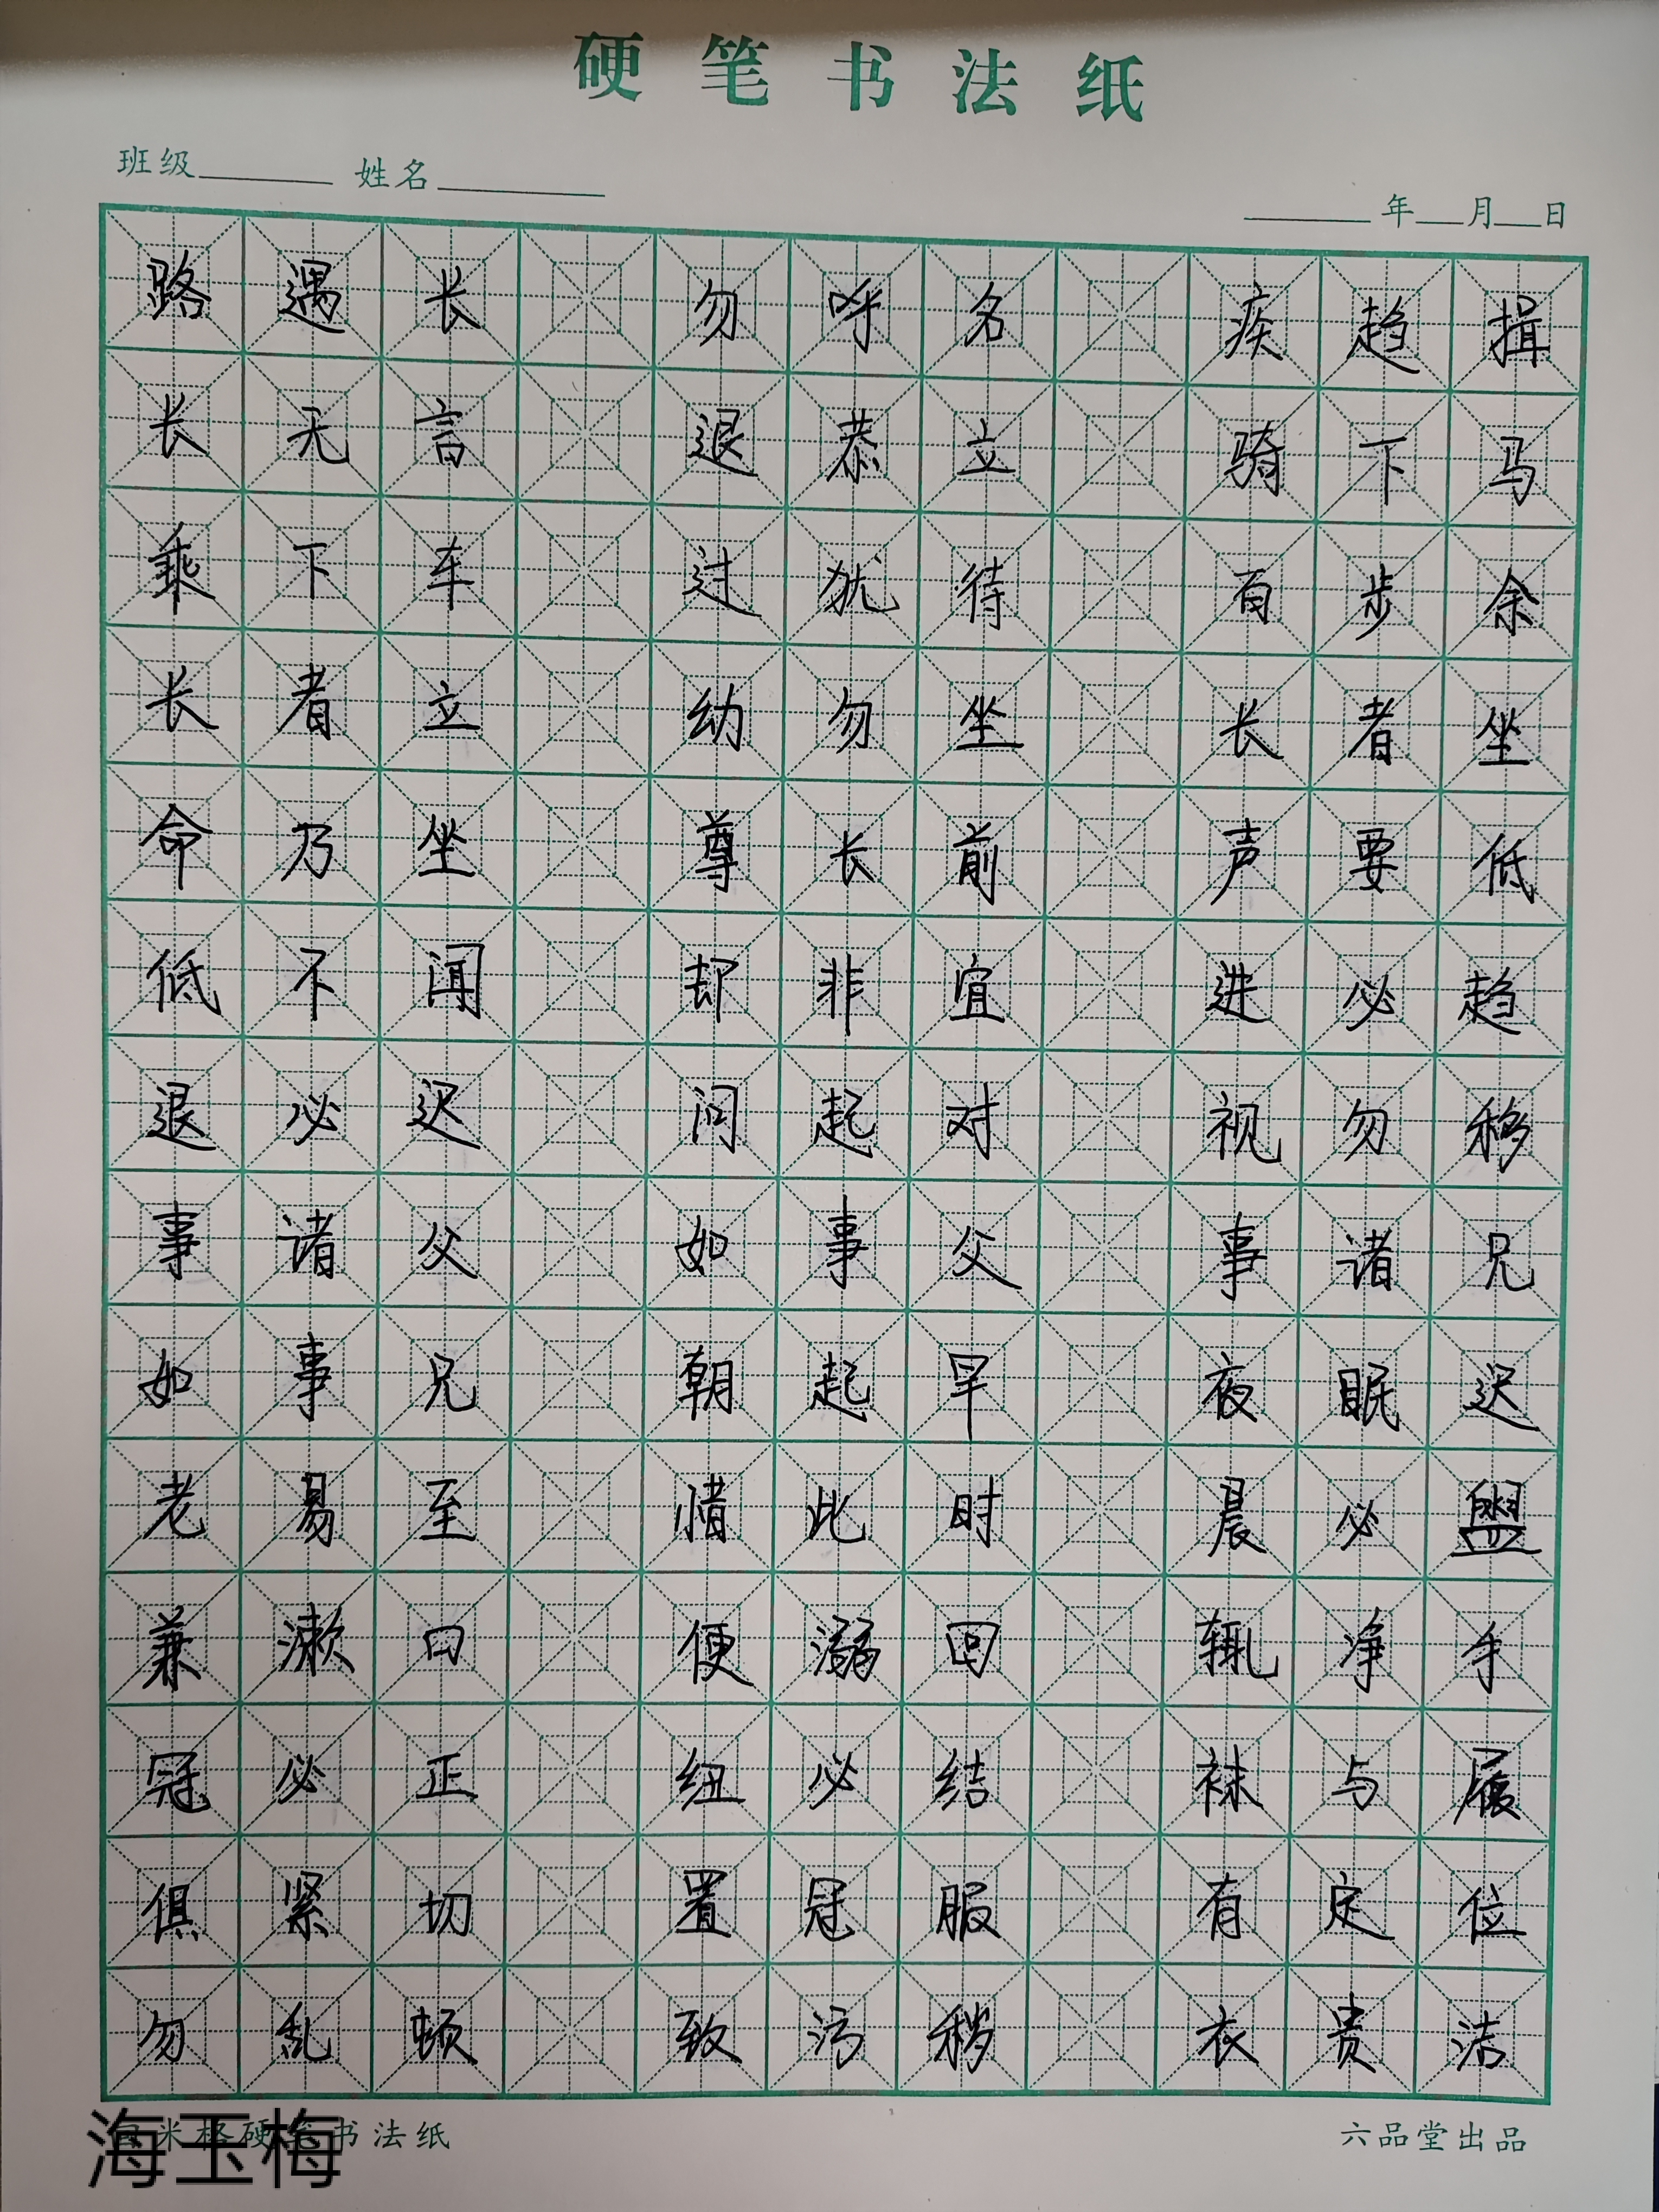 硬笔书法纸
班级 姓名
年 月 日
路遇长 勿呼名 疾趋揖
长无言 退恭立 骑下马
乘下车 过犹待 百步余
长者立 幼勿坐 长者坐
命乃坐 尊长前 声要低
低不闻 却非宜 进必趋
退必迟 问起对 视勿移
事诸父 如事父 事诸兄
如事兄 朝起早 夜眠迟
老易至 惜此时 晨必盥
兼漱口 便溺回 辄净手
冠必正 纽必结 袜与履
俱紧切 置冠服 有定位
勿乱顿 致污秽 衣贵洁
米格硬笔书法纸 六品堂出品
海玉梅